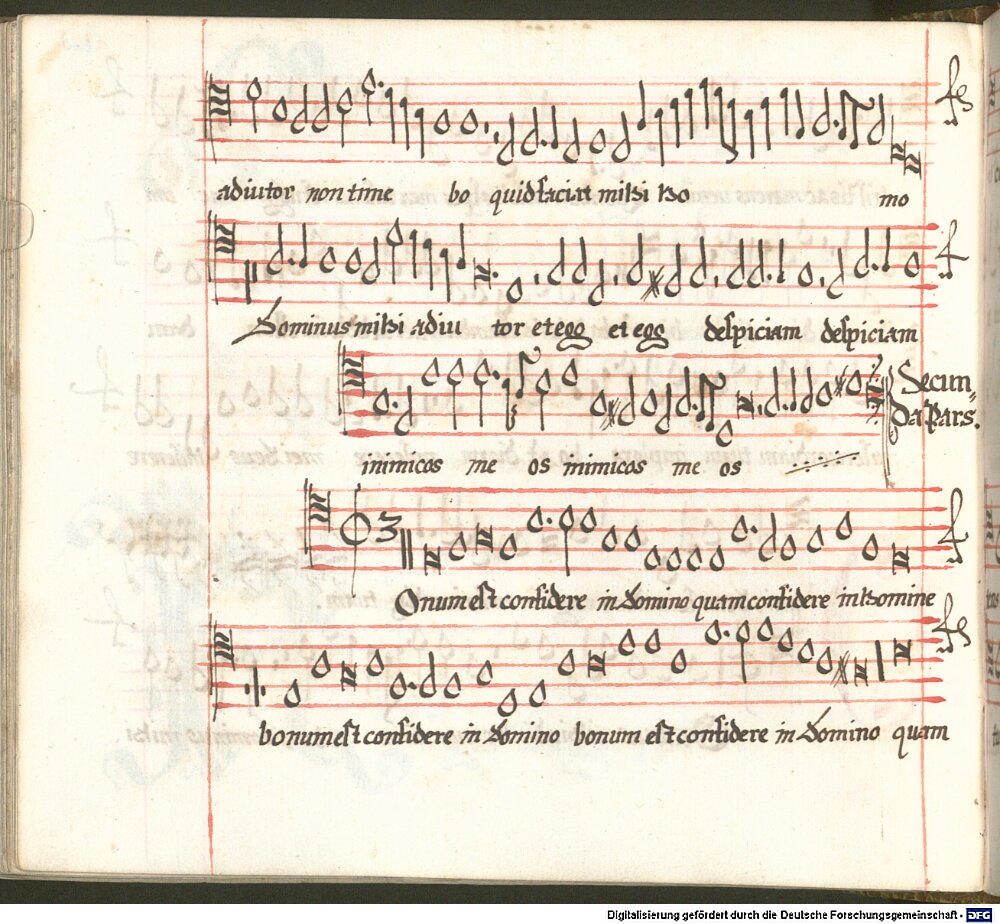 adiutor non time bo quid faciat mihi ho mo
Dominus mihi adiu tor et ego et ego despiciam despiciam
inimicos me os inimicos me os
Secun=
da Pars.
Onum est confidere in Domino quam confidere in homine
bonum est confidere in Domino bonum est confidere in Domino quam
Digitalisierung gefördert durch die Deutsche Forschungsgemeinschaft - DFG